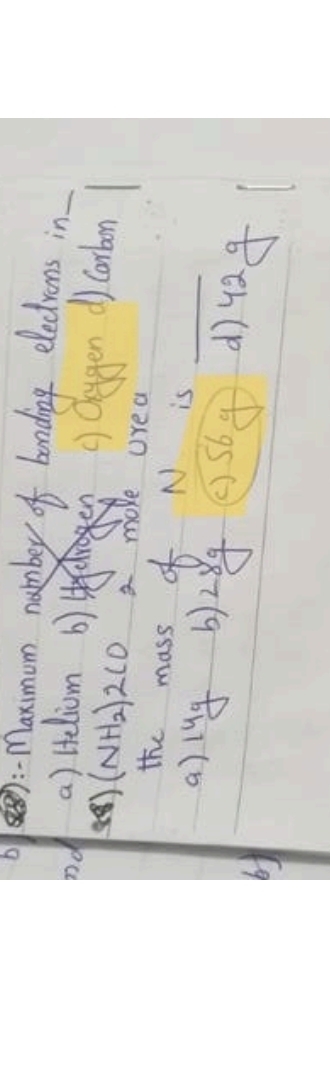 b) :- Maximum number of bonding electrons in_
a) Helium b) Hydrogen c) Oxygen d) Carbon
nd 8) (NH2)2CO 2 mole urea
the mass of N is ___
a) 14g b) 28g c) 56g d) 42g
b)